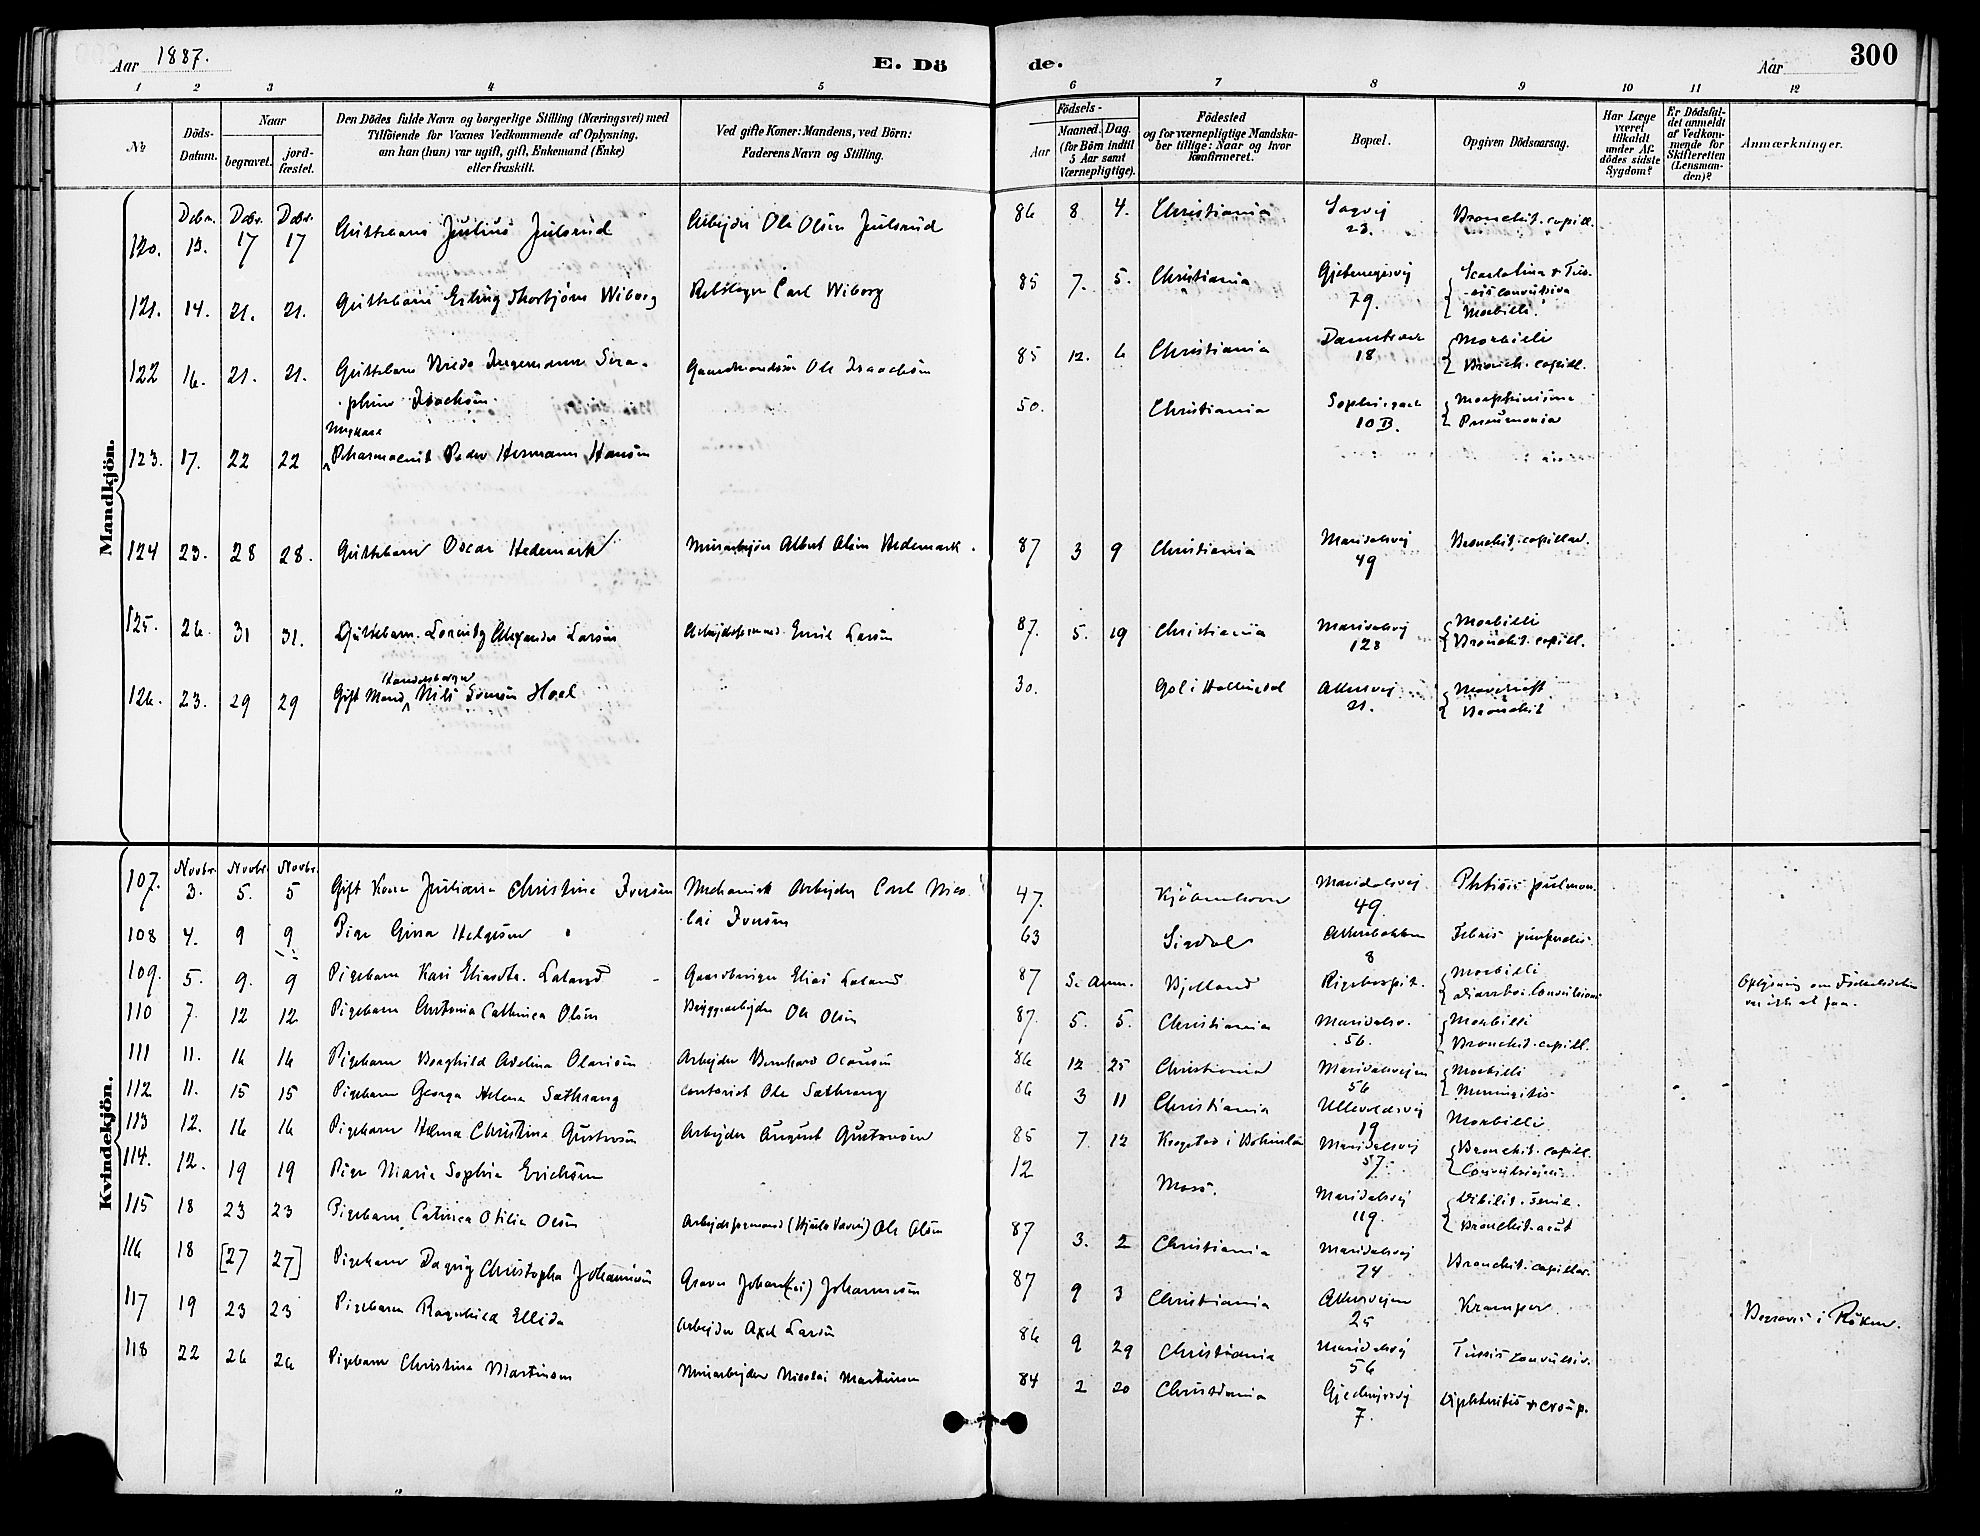 Aar 1887.
E. Dö
de.
Aar
300
1 2 3 4 5 6 7 8 9 10 11 12
No
Döds-
Datum.
Naar
begravet.
jord-
fæstet.
Den Dödes fulde Navn og borgerlige Stilling (Næringsvei) med
Tilföiende for Voxnes Vedkommende af Oplysning,
om han (hun) var ugift, gift, Enkemand (Enke)
eller fraskilt.
Ved gifte Koner: Mandens, ved Börn:
Faderens Navn og Stilling.
Födsels-
Aar
Maaned. Dag.
(for Börn indtil
5 Aar samt
Værnepligtige).
Födested
og for værnepligtige Mandska-
ber tillige: Naar og hvor
konfirmeret.
Bopæl.
Opgiven Dödsaarsag.
Har Læge
været
tilkaldt
under Af-
dödes sidste
Sygdom?
Er Dödsfal-
det anmeldt
af Vedkom-
mende for
Skifteretten
(Lensman-
den)?
Anmærkninger.
Mandkjön.
Decbr. Decbr. Decbr.
120. 17 17 Guttebarn Julius Julsrud Arbejder Ole Olsen Julsrud 86 8 4. Christiania Sagvej 23. Bronchit. capill.
121. 14. 21. 21. Guttebarn Erling Thorbjörn Wiborg Rebslager Carl Wiborg 85 7. 5. Christiania 79. Scarlatina & Tus-
sis convulsiva
Morbilli
122 16. 21. 21. Guttebarn Ingemann Sera-
phin Isachsen Gaardmandssön Ole Isachsen 85 12. 6 Christiania 18 Morbilli
Bronch. capill.
Ungkarl
123. 17. 22 22 Pharmaceut Peder Hermann Hansen 50. Christiania Sophiegade 10 B. Morphinisme
Pneumonia
124 23. 28 28. Guttebarn Oscar Hedemark Murarbejder Albert Olsen Hedemark. 87 3 9 Christiania Maridalsvej 49 Bronchit. capillar.
125. 26. 31 31. Guttebarn Lorentz Alexander Larsen Arbejdsformand Emil Larsen 87. 5. 19 Christiania Maridalsvej 128 Morbilli
Bronchit. capill.
126. 23. 29 29 Gift Mand Nils Hoel 30. Gol i Hallingdal Akersvej 21. Bronchit
Kvindekjön.
Novbr. Novbr. Novbr.
107. 3. 5. 5 Gift Kone Juliane Christine Iversen Mechanisk Arbejder Carl Nico-
lai Iversen 47. Kjöbenhavn Maridalsvej 49. Phtisis pulmon.
108 4. 9 9 Pige Gina Helgesen 63 Sigdal Akersbakken 8 Febris puerperalis.
109. 5. 9. 9 Pigebarn Kari Eliasdtr. Laland Gaardbruger Elias Laland 87 Bjelland Rigshospit. Morbilli
Diarrhoe. Convulsion
Oplysning om Födselsdatum
var ikke at faa.
110 7. 12 12 Pigebarn Antonia Cathrica Olsen Bryggearbejder Ole Olsen 87. 5. 5. Christiania Maridalsv. 56. Morbilli
Bronchit. capill.
111 11. 16 16 Pigebarn Borghild Adelina Olausen Arbejder Bernhard Olausen 86 12 25 Christiania Maridalsvejen 56 Morbilli
Meningitis
112 11. 15 15 Pigebarn Georga Helena Sæthrang Contorist Ole Sæthrang 86 3 11 Christiania Ullevoldsvej 19 Morbilli
113 12. 16 16 Pigebarn Helma Christina Gustavsen Arbejder August Gustavsen 85 7. 12 Krogstad i Bohuslän Maridalsvej 57. Bronchit. capill.
Convulsioner
114. 12. 19 19 Pige Maria Sophie Erichsen 12 Moss. Maridalsvej 119. Debilit. senil.
Bronchit. acut
115 18 23 23 Pigebarn Catinca Otilia Olsen Arbejdsformand (Hjula Væveri) Ole Olsen 87 3. 2 Christiania Maridalsvej 74 Bronchit. capillar.
116 18 [27 27] Pigebarn Dagny Christopha Johannesen Graver Johan Johannesen 87 9 3 Christiania Akersvejen 25 Kramper. Begravet i Röken.
117 19 23 23 Pigebarn Ragnhild Ellida Arbejder Axel Larsen 86 9 29 Christiania Maridalsvej 56 Tussis convulsiv.
118 22 26 26 Pigebarn Christine Martinsen Murarbejder Nicolai Martinsen 84 2 20 Christiania 7. Diphteritis & croup.